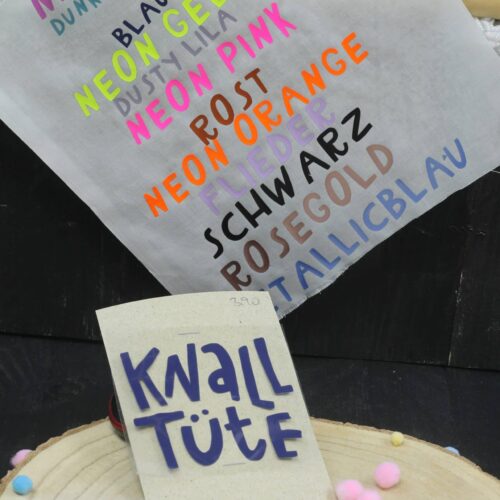 BLAU
NEON GELB
DUSTY LILA
NEON PINK
ROST
NEON ORANGE
FLIEDER
SCHWARZ
ROSEGOLD
TALLICBLAU
3.90
Knall
TüTE